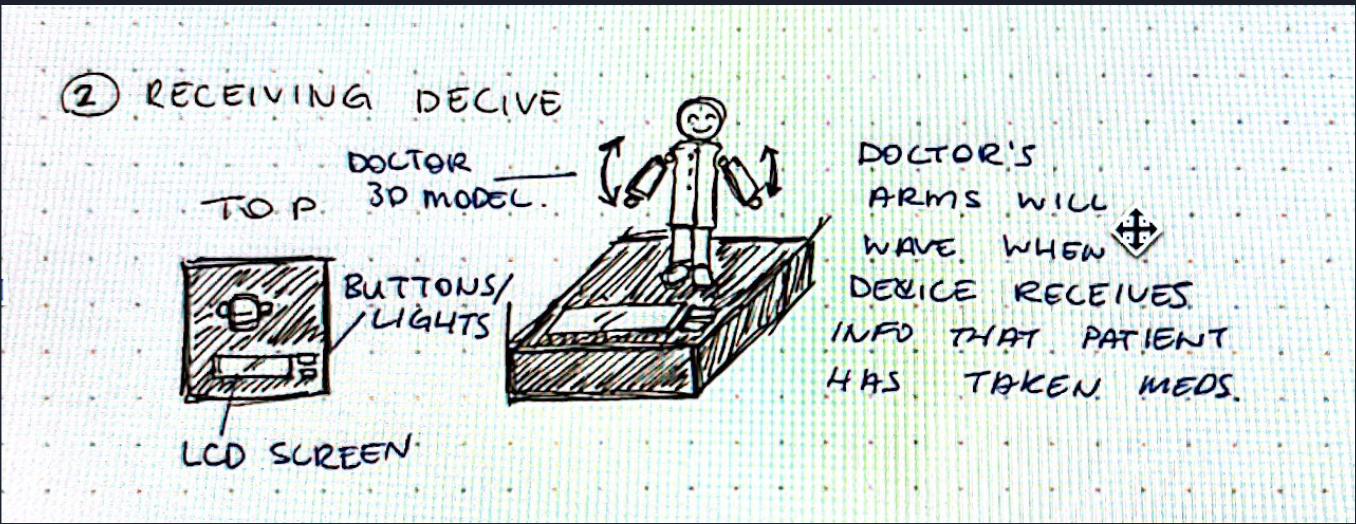 2 RECEIVING DECIVE
DOCTOR
3D MODEL.
TOP
BUTTONS/
LIGHTS
LCD SCREEN
DOCTOR'S
ARMS WILL
WAVE WHEN
DEVICE RECEIVES
INFO THAT PATIENT
HAS TAKEN MEDS.